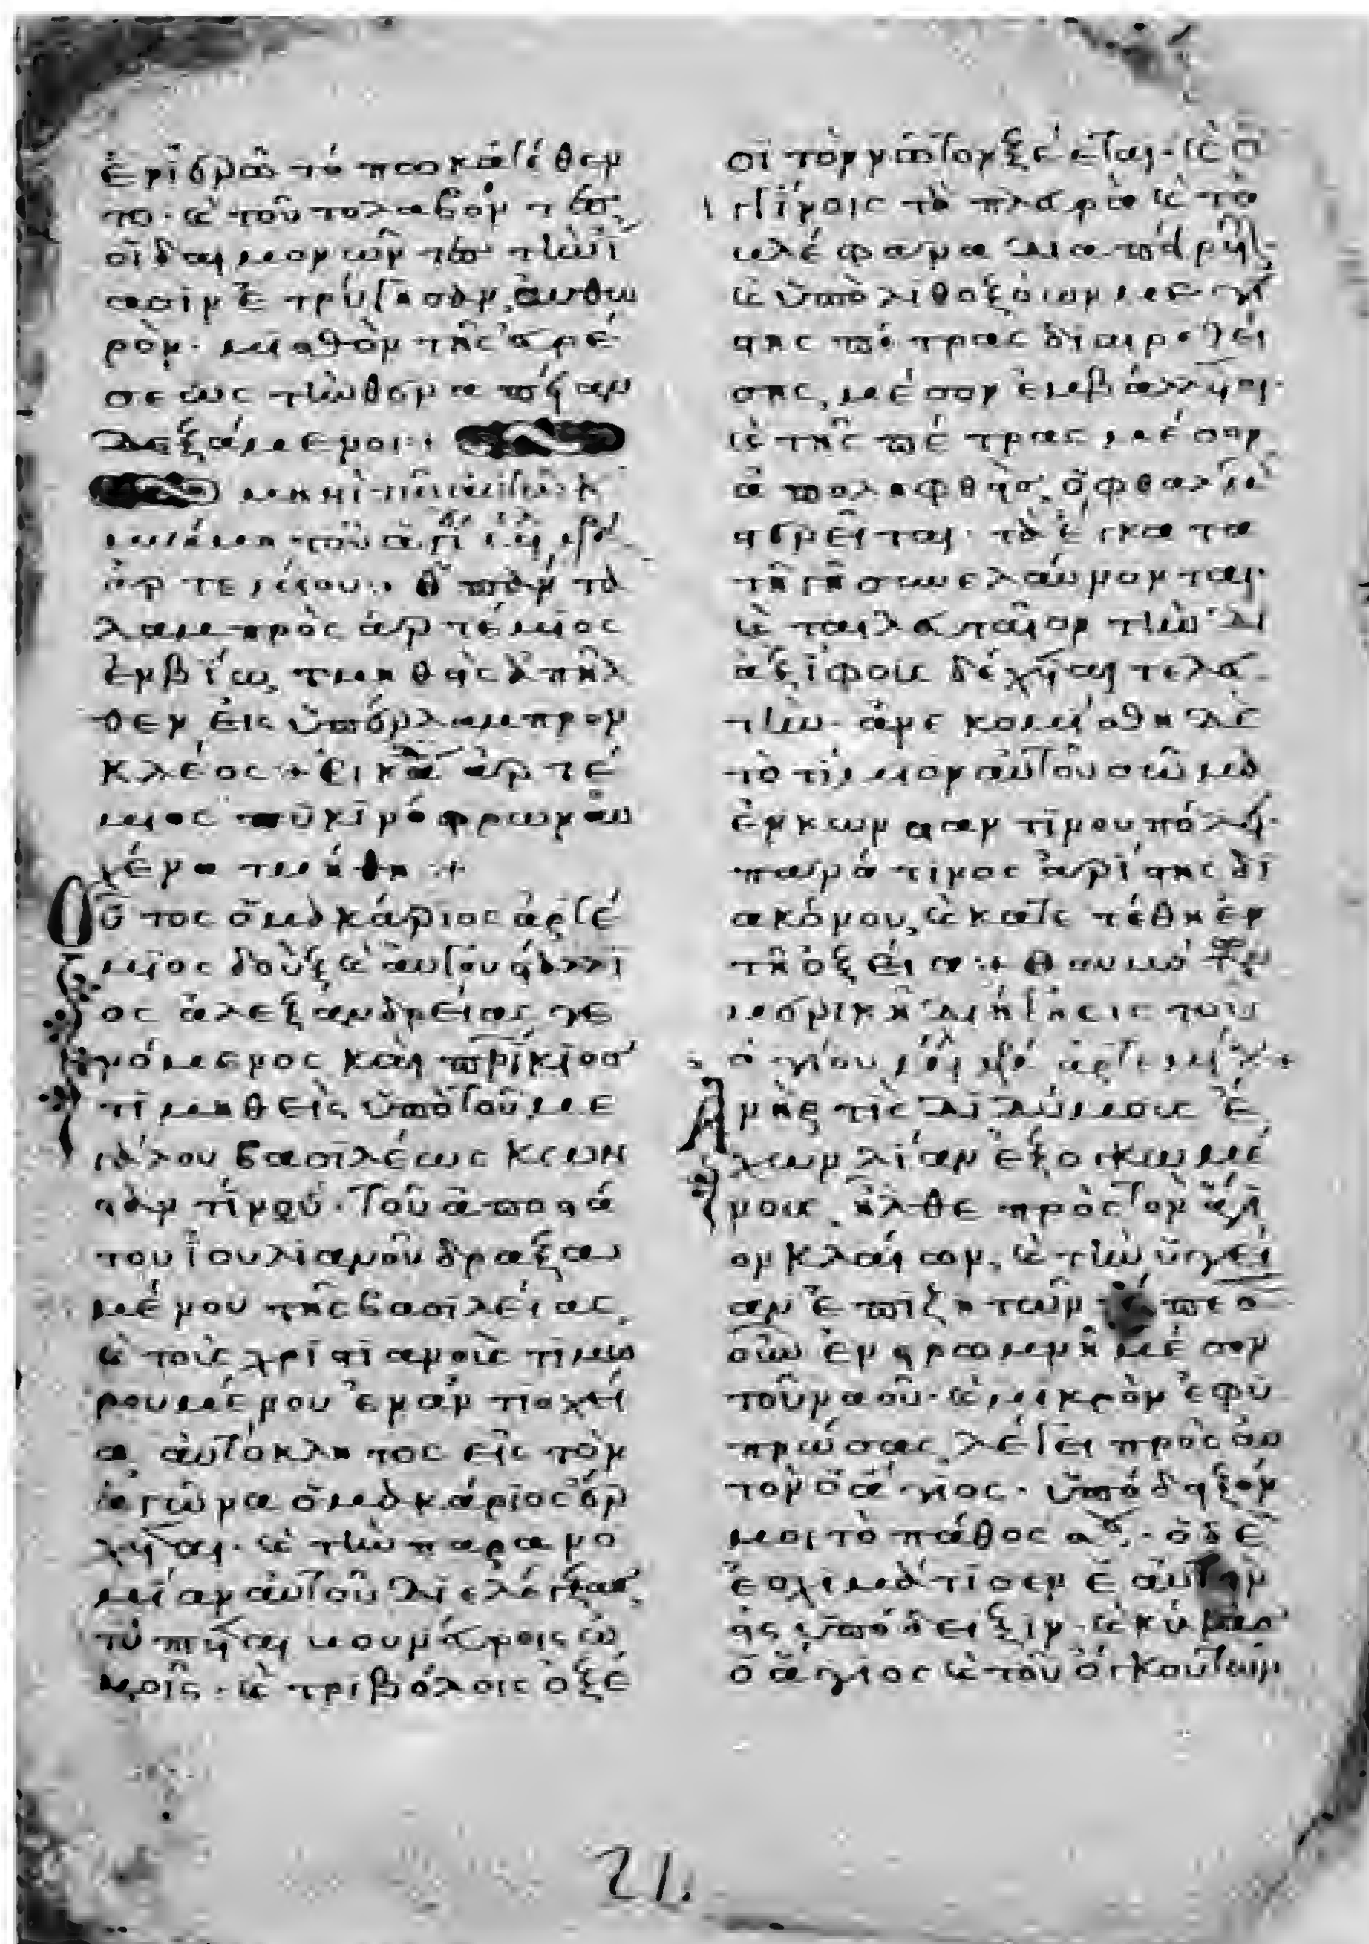 το· καὶ τοῦτο λαβὸν
οἱ δαιμονῶντ
ρὸν· μισθὸν τῆς αἱρέ
σεως
λεξάμενοι·+
μηνὶ
μνήμη τοῦ ἁγί
ἀρτεμίου·
λαμπρὸς ἀρτέμιος
ἐν βίω, τμηθεὶς ἀπῆλ
θεν εἰς ὑπέρλαμπρον
κλέος·+ εἰκάδι ἀρτέ
μιος
χένα τμήθη·+
Οὗτος ὁ μακάριος ἀρτέ
μιος δοὺξ καὶ αὐγουστάλι
ος ἀλεξανδρείας γε
νόμενος καὶ πατρίκιος
τιμηθεὶς ὑπὸ τοῦ με
γάλου βασιλέως κων
σταντίνου· τοῦ ἀποστά
του ἰουλιανοῦ δραξα
μένου τῆς βασιλείας,
καὶ τοὺς χριστιανοὺς τιμω
ρουμένου ἐν ἀντιοχεί
α, αὐτόκλητος εἰς τὸν
ἀγῶνα ὁ μακάριος ἔρ
χεται· καὶ τὴν παρανο
μίαν αὐτοῦ διελέγξας,
τύπτεται βουνεύροις ὠ
μοῖς· καὶ τριβόλοις ὀξέ
σι τὸν νῶτον ξέεται· καὶ
τὰ πλευρὰ καὶ τὰ
βλέφαρα διαπείρεται,
καὶ ὑπὸ λιθοξόων με
στης πέτρας διαιρεθεί
σης, μέσον ἐμβάλλεται·
καὶ τῆς πέτρας μέσον
ἀποληφθεὶς, ὀφθαλμῶν
στερεῖται· τὰ ἔγκατα
τῆ γῆ συνελαύνονται·
καὶ ταλευταῖον τὴν δι
ὰ ξίφους δέχεται τελευ
τήν· ἀνεκομίσθη δὲ
τὸ τίμιον αὐτοῦ σῶμα
ἐν κωνσταντινουπόλει·
παρά τινος ἀρίστης δι
ακόνου, καὶ κατετέθη ἐν
τῆ ὀξεία·+ θαῦμα
μερικὴ διήγησις τοῦ
ἁγίου με μρ ἀρτεμίου+
Ἀνήρ τις διδύμους ἔ
χων λίαν ἐξογκωμέ
νους, ἦλθε πρὸς τὸν ἅγι
ον κλαίων, καὶ τὴν ὑγεί
αν ἐπιζητῶν·
οὖν ἐν στρωμνῆ μέσον
τοῦ ναοῦ· καὶ μικρὸν ἐφυ
πνώσας, λέγει πρὸς αὐ
τὸν ὁ ἅγιος· ὑπόδειξόν
μοι τὸ πάθος σου· ὁ δὲ
ἐσχημάτισεν ἑαυτὸν
εἰς ὑπόδειξιν· καὶ κύψας
ὁ ἅγιος καὶ τοῦ ὄγκου τῶν
21.